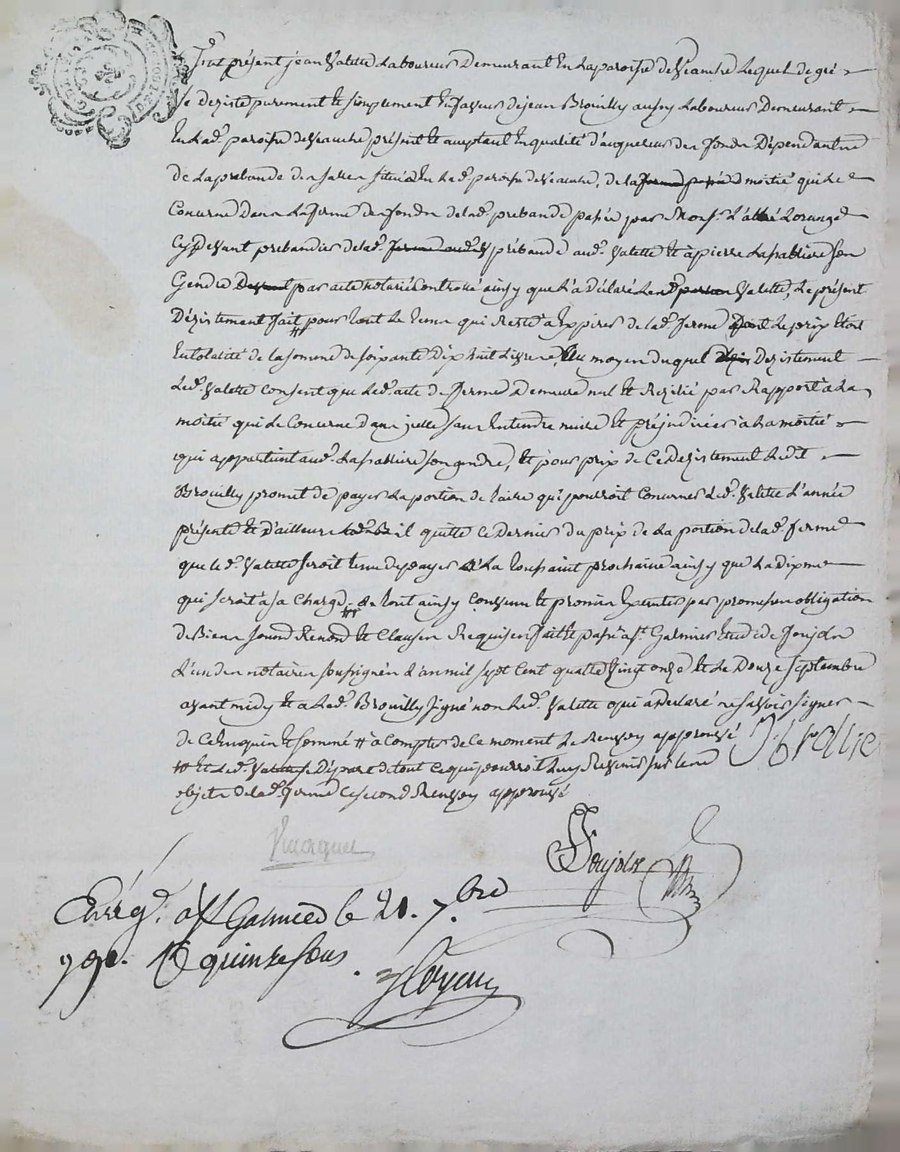 fut présent jean Valette Laboureur Demeurant En La paroisse de Veauche Lequel de gré
se deziste purement Et simplement En faveur de jean Brouilly aussy Laboureur Demeurant
En Lad.e paroisse de Veauche présent Et acceptant En qualité d'acquereur des fonds Dépendants
de La prebande des farces située En Lad.e paroisse de Veauche, de la moitié qui Le
Concerne Dans La ferme des fonds de lad.e prebande passée par Mons.r L'abbé Lorange
Cy devant prebandier de lad.e prébande aud.t Valette Et à pierre Lasablière son
Gendre par acte notarié Controllé ainsy que L'a déclaré Led.t Valette, Le présent
Dézistement fait pour tout Le tems qui Reste à Expirer de lad.e ferme Dont Le prix Etoit
En totalité de La somme de soixante Dix huit Livres, Au moyen duquel Dezistement
Led.t Valette Consent que Led.t acte de ferme Demeure nul Et Rezilié par Rapport à La
moitié qui Le Concerne dans jcelle sans Entendre nuire Et préjudicier à La moitié
qui appartient aud.t Lasablière son gendre, Et pour prix de Ce Dezistement Ledit
Brouilly promet de payer La portion de taille qui pourroit Concerner Led.t Valette L'année
présente Et d'ailleurs il quitte Ce Dernier du prix de La portion de lad.e ferme
que Led.t Valette seroit tenu de payer à La toussaint prochaine ainsy que La dixme
qui seroit à sa Charge, de tout ainsy Convenu Et promis Executer par promesse obligation
de Biens soumd. Renond. Et Clauses Requises fait Et passé à S.t Galmier Etude de Poujols
L'un des notaires soussignés L'an mil sept Cent quatre vingt onze Et Le Douze septembre
avant midy Et a Led.t Brouilly signé non Led.t Valette qui a Declaré ne savoir signer
de Ce Enquis Et sommé # à Compter de Ce moment Le Renvoy approuvé
# Et Led.t Valette Départ de tout Ce qui pourroit Luy Revenir sur Les
objets de lad.e ferme Ce second Renvoy approuvé
Enrég.é à S.t Galmier le 21. 7.bre
791. R quinze sous.